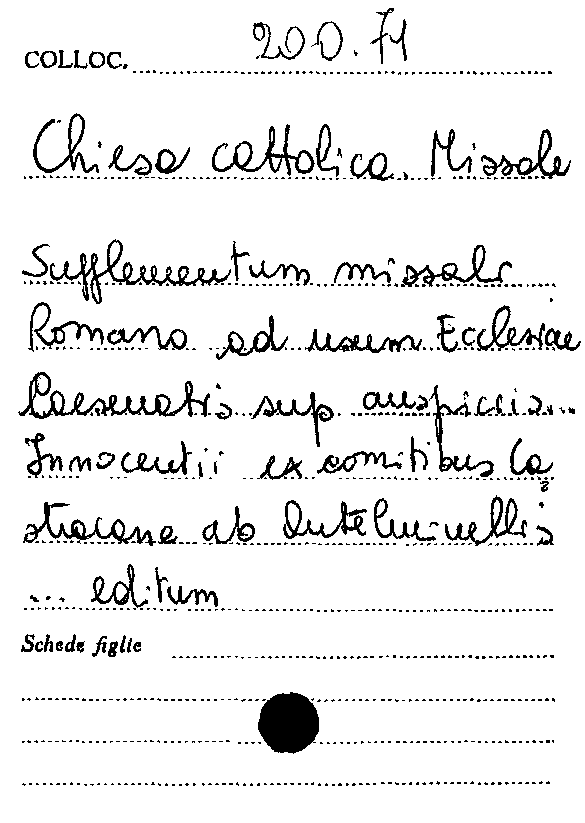 COLLOC. 200.71
Chiesa cattolica. Missale
Supplementum missali
Romano ad usum Ecclesiae
Caesenatis sup auspiciis...
Innocentii ex comitibus Ca
stracane ab Antelminellis
... editum
Schede figlie